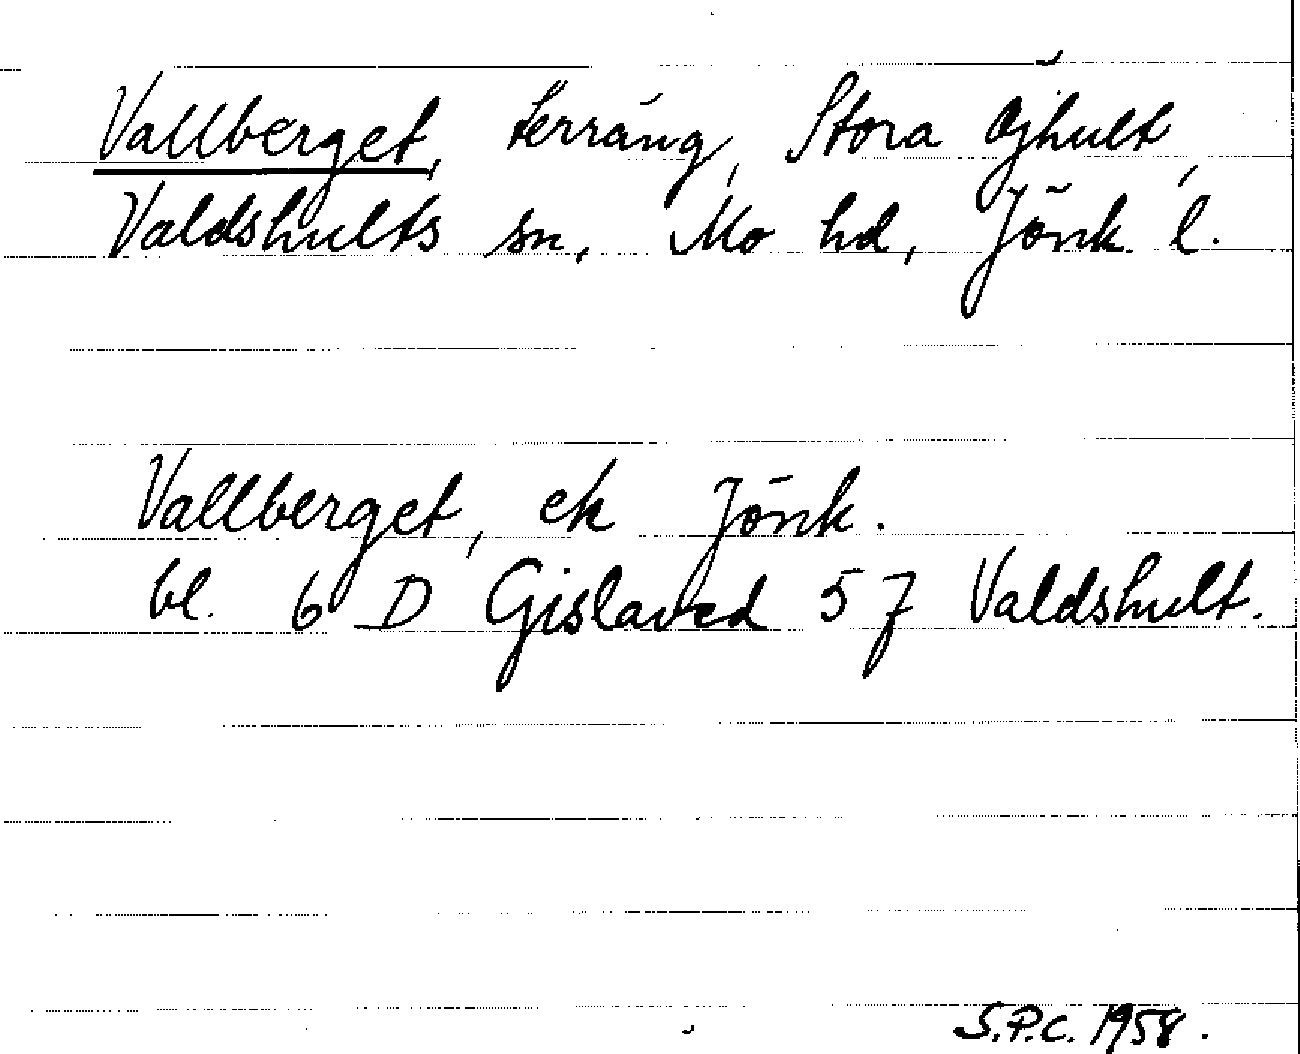 Vallberget, terräng, Stora Öjhult,
Valdshults sn, Mo hd, Jönk. l.
Vallberget, ek Jönk.
bl. 6 D Gislaved 57 Valdshult.
S.P.C. 1958.